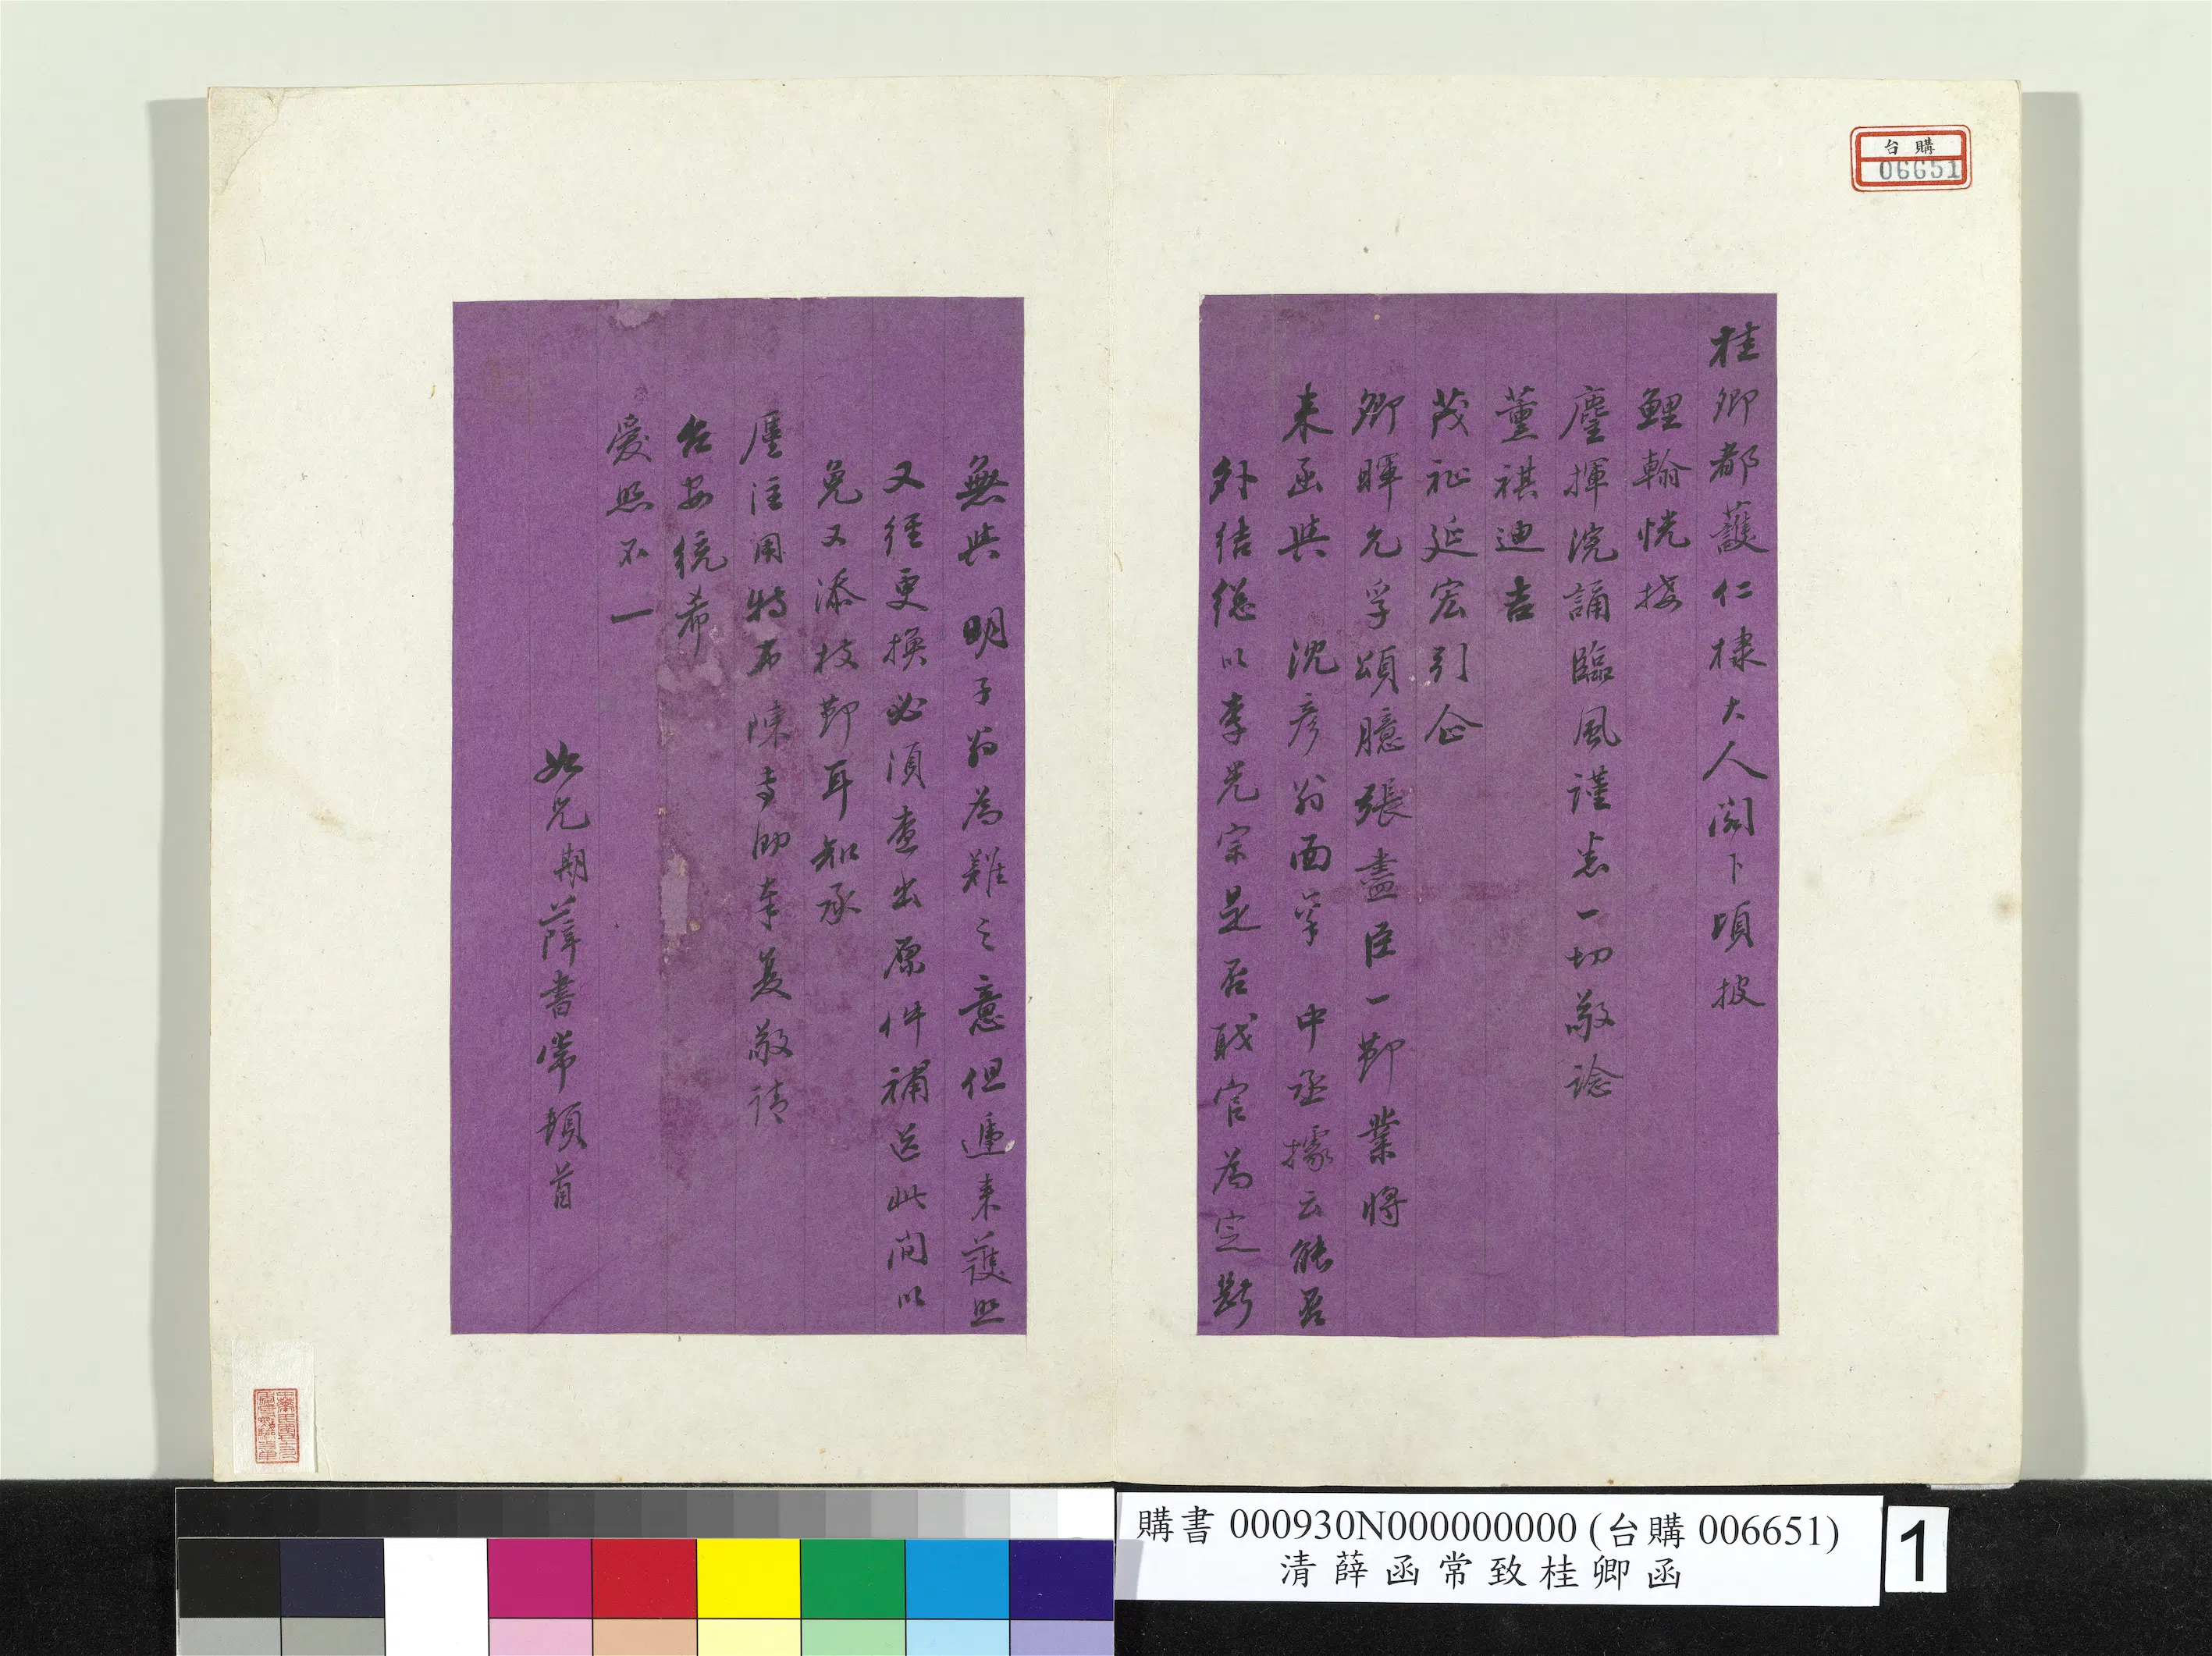 桂卿都護仁棣大人閣下頃披
鯉翰恍接
麈揮浣誦臨風謹悉一切敬諗
薰祺迪吉
茂祉延宏引企
卿暉允孚頌臆張盡臣一節業將
來函與 沈彥翁面
中丞據云能否
外結總以李光宗是否職官為定斷
無與 明子翁為難之意但遞來護照
又經更換必須查出原件補送此間以
免又添枝節耳知承
廑注用特布陳專泐奉复敬請
台安統希
愛照不一
如兄期薛書常頓首
台購
06651
購書 000930N000000000 (台購 006651)
清薛函常致桂卿函
1